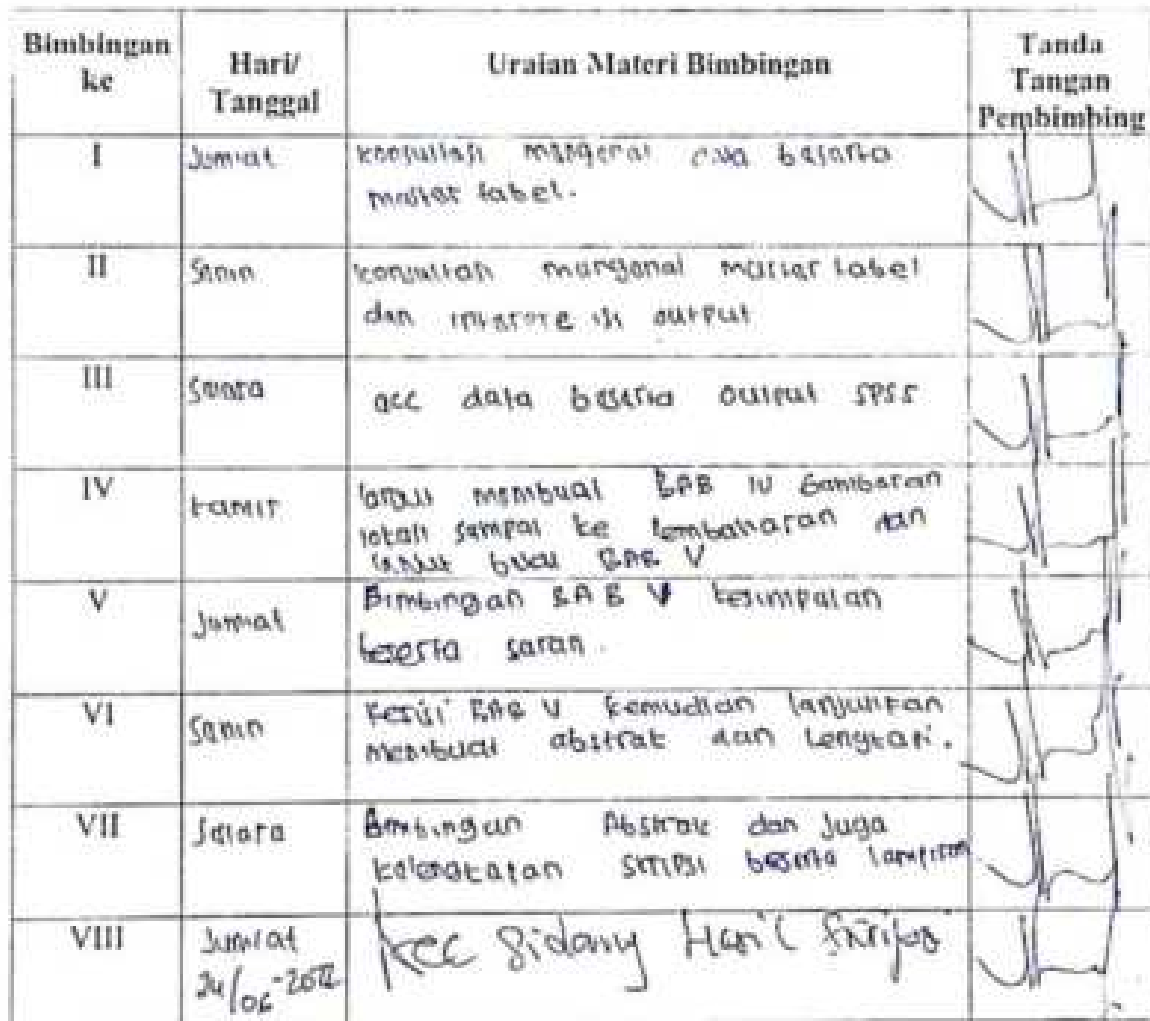 Bimbingan ke
Hari/ Tanggal
Uraian Materi Bimbingan
Tanda Tangan Pembimbing
I
Jum'at
konsultasi mengenai beserta
master tabel.
II
Senin
konsultasi mengenai master tabel
dan output
III
Selasa
acc data beserta output SPSS
IV
kamis
lanjut membuat BAB IV Gambaran
lokasi sampai ke pembahasan dan
lanjut buat BAB V
V
Jum'at
Bimbingan BAB V kesimpulan
beserta saran.
VI
Senin
BAB V kemudian lanjutkan
membuat abstrak dan lengkapi.
VII
Selasa
Bimbingan Abstrak dan juga
skripsi beserta lampiran
VIII
Jum'at
24/06-2022
Acc Sidang Hasil Skripsi